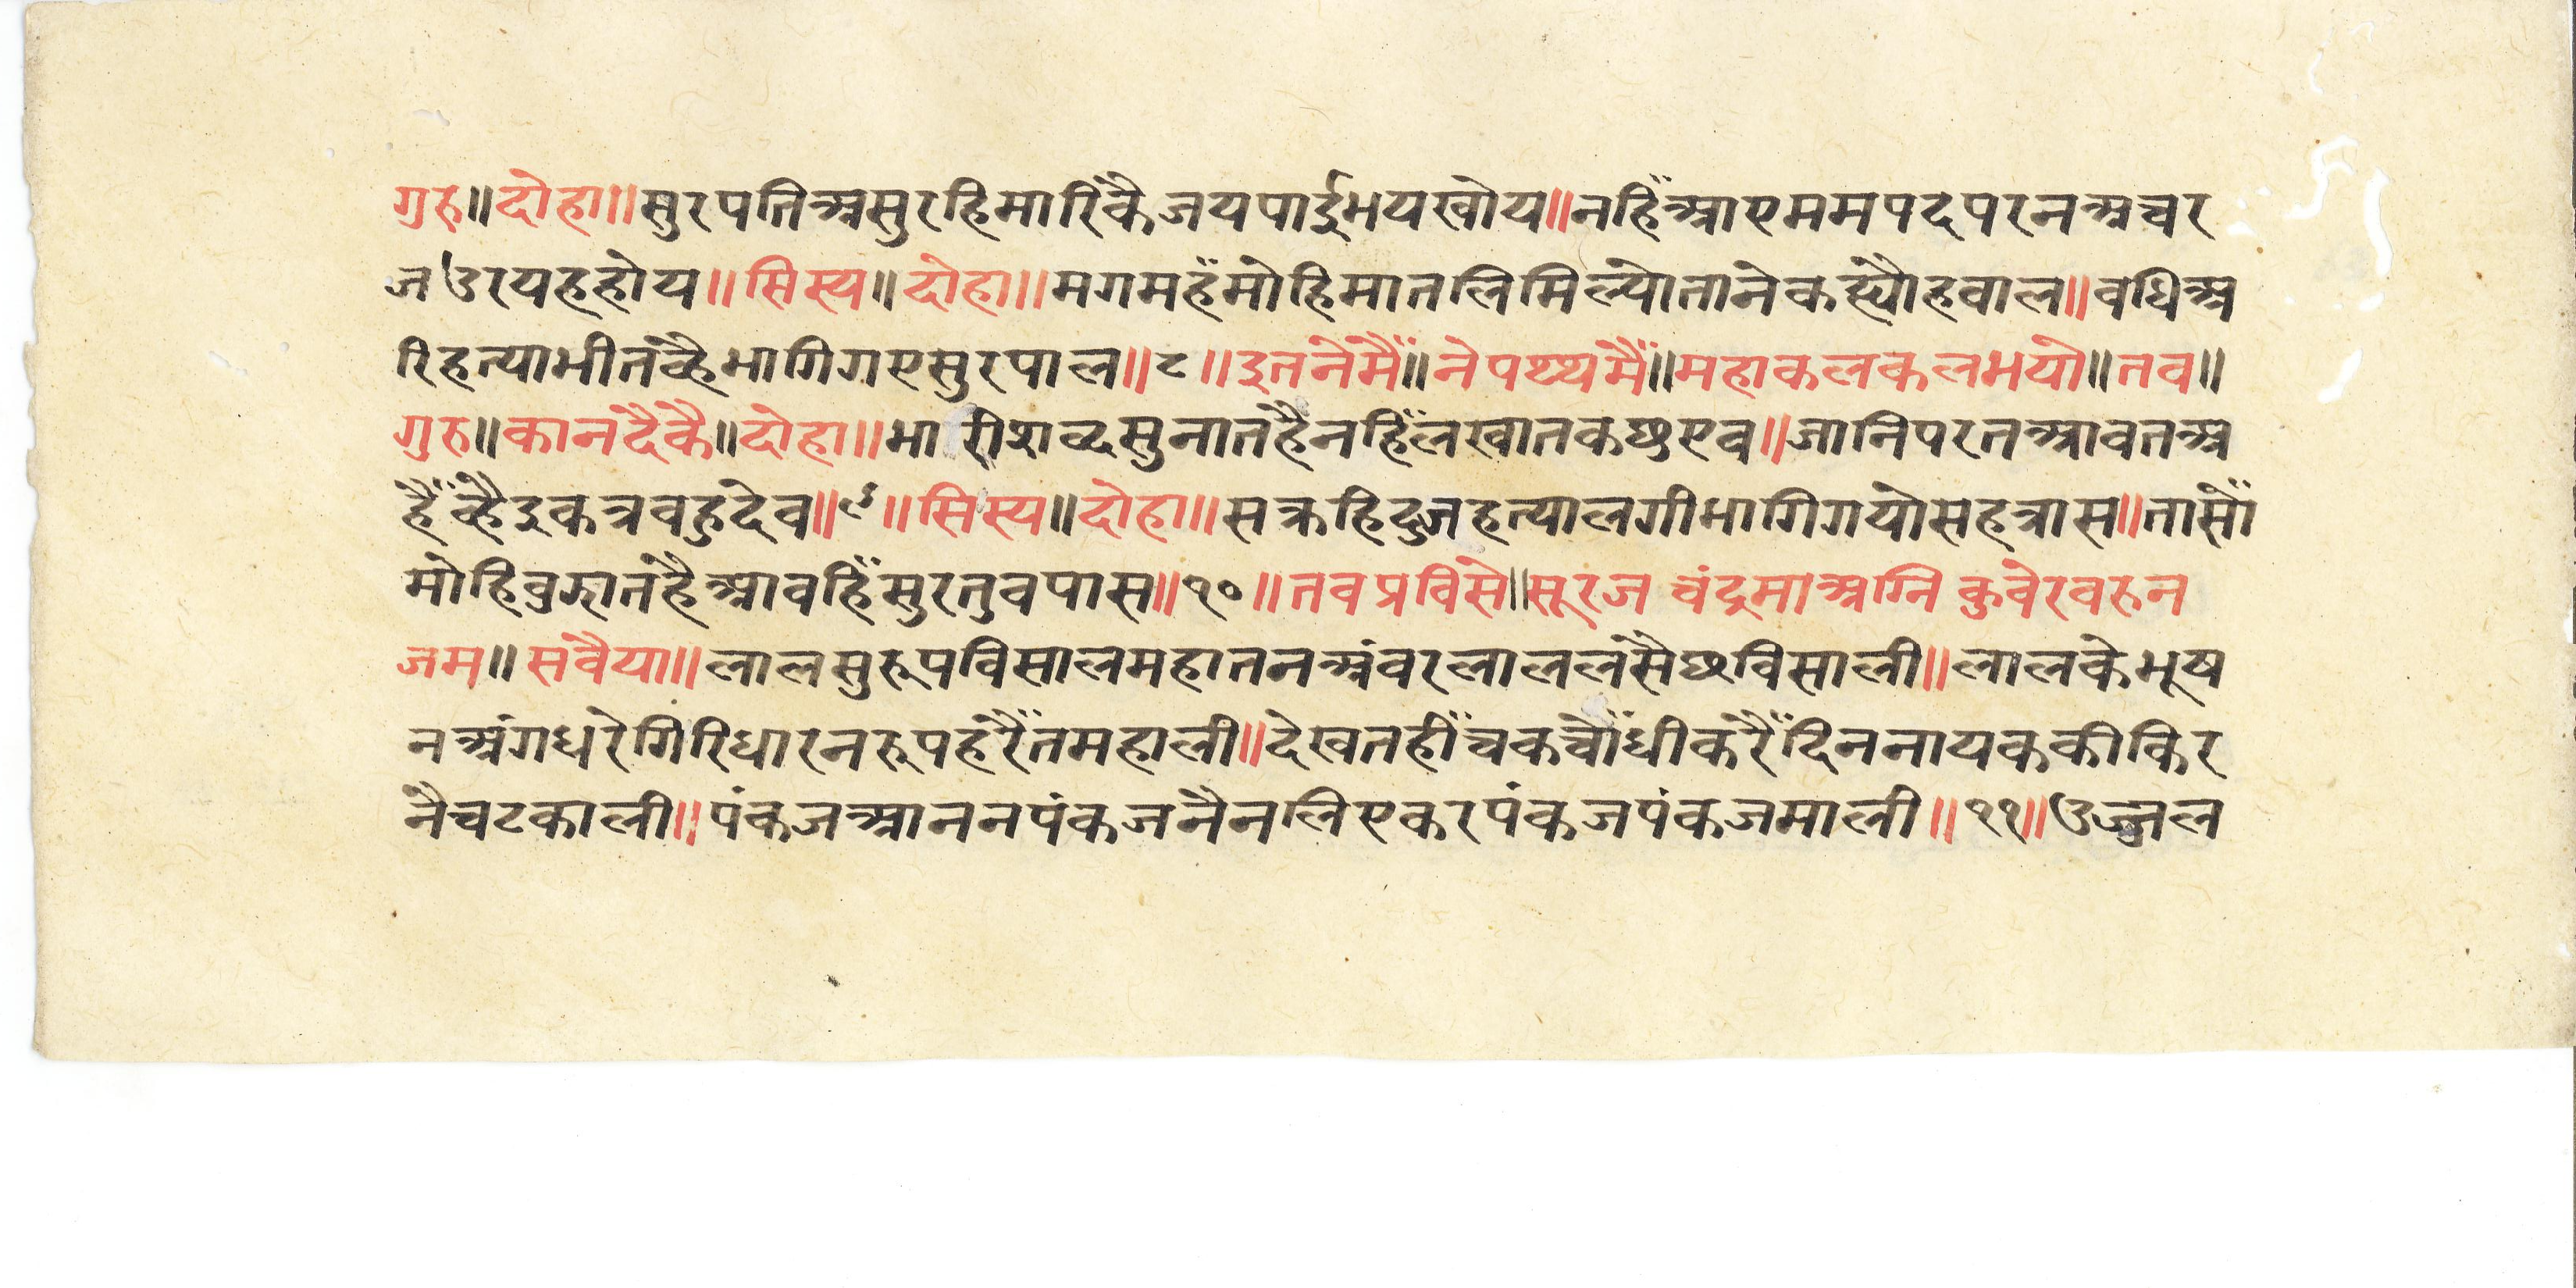 गुरु॥दोहा॥सुरपतिअसुरहिमारिकैजयपाईभयखोय॥नहिँआएममपदपरनअचर
जउरयहहोय॥सिस्य॥दोहा॥मगमहँमोहिमातलिमिल्योतानेकह्यौहवाल॥वधिअ
रिहत्याभीतव्हैभागिगएसुरपाल॥८॥इतनेमैँ॥नेपथ्थमैँ॥महाकलकलभयो॥तव॥
गुरु॥कानदैकै॥दोहा॥भारीशव्दसुनातहैनहिँलखातकछुएव॥जानिपरतआवतअ
हैँव्हैइकत्रवहुदेव॥९॥सिस्य॥दोहा॥सक्रहिदुजहत्यालगीभागिगयोसहत्रास॥तासोँ
मोहिवुझातहैआवहिँसुरतुवपास॥१०॥तवप्रविसे॥सूरज चंद्रमाअग्नि कुवेरवरुन
जम॥सवैया॥लालसुरूपविसालमहातनअंवरलाललसैछविसाली॥लालकेभूष
नअंगधरेगिरिधारनरूपहरैँतमहाली॥देखतहीँचकचौँधीकरैँदिननायककीकिर
नैचटकाली॥पंकजआननपंकजनैनलिएकरपंकजपंकजमाली॥११॥उज्जल